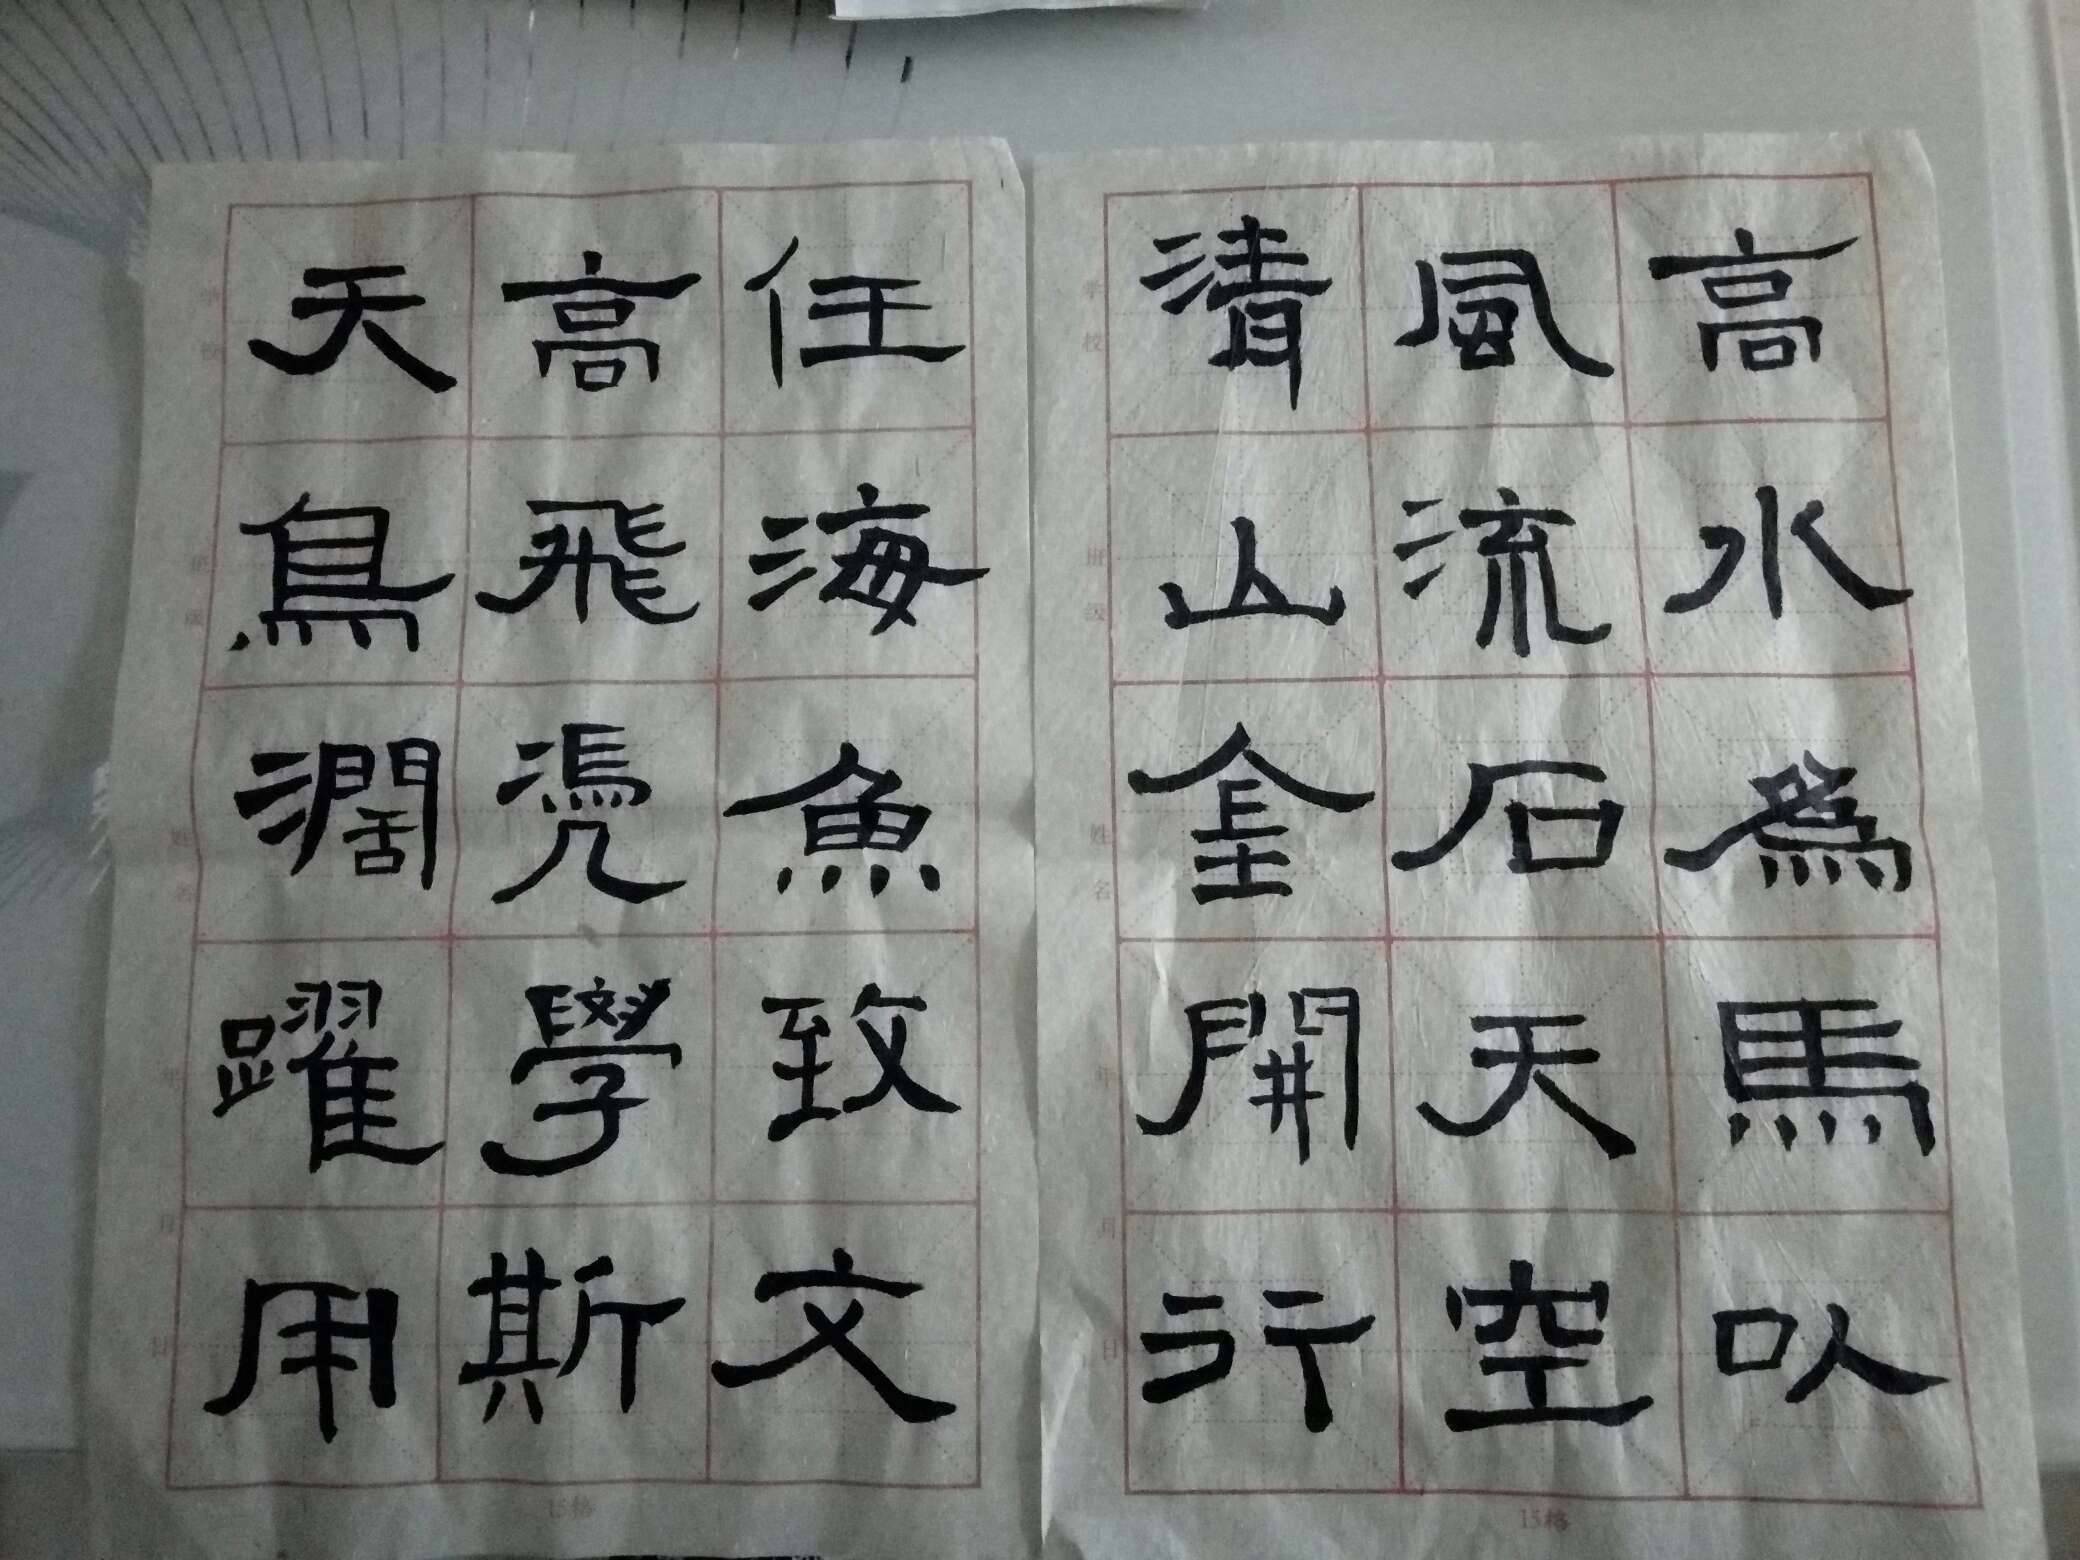 天高任
鳥飛海
濶凴魚
躍學致
用斯文
15格
清風高
山流水
金石為
開天馬
行空以
姓名
月
日
15格